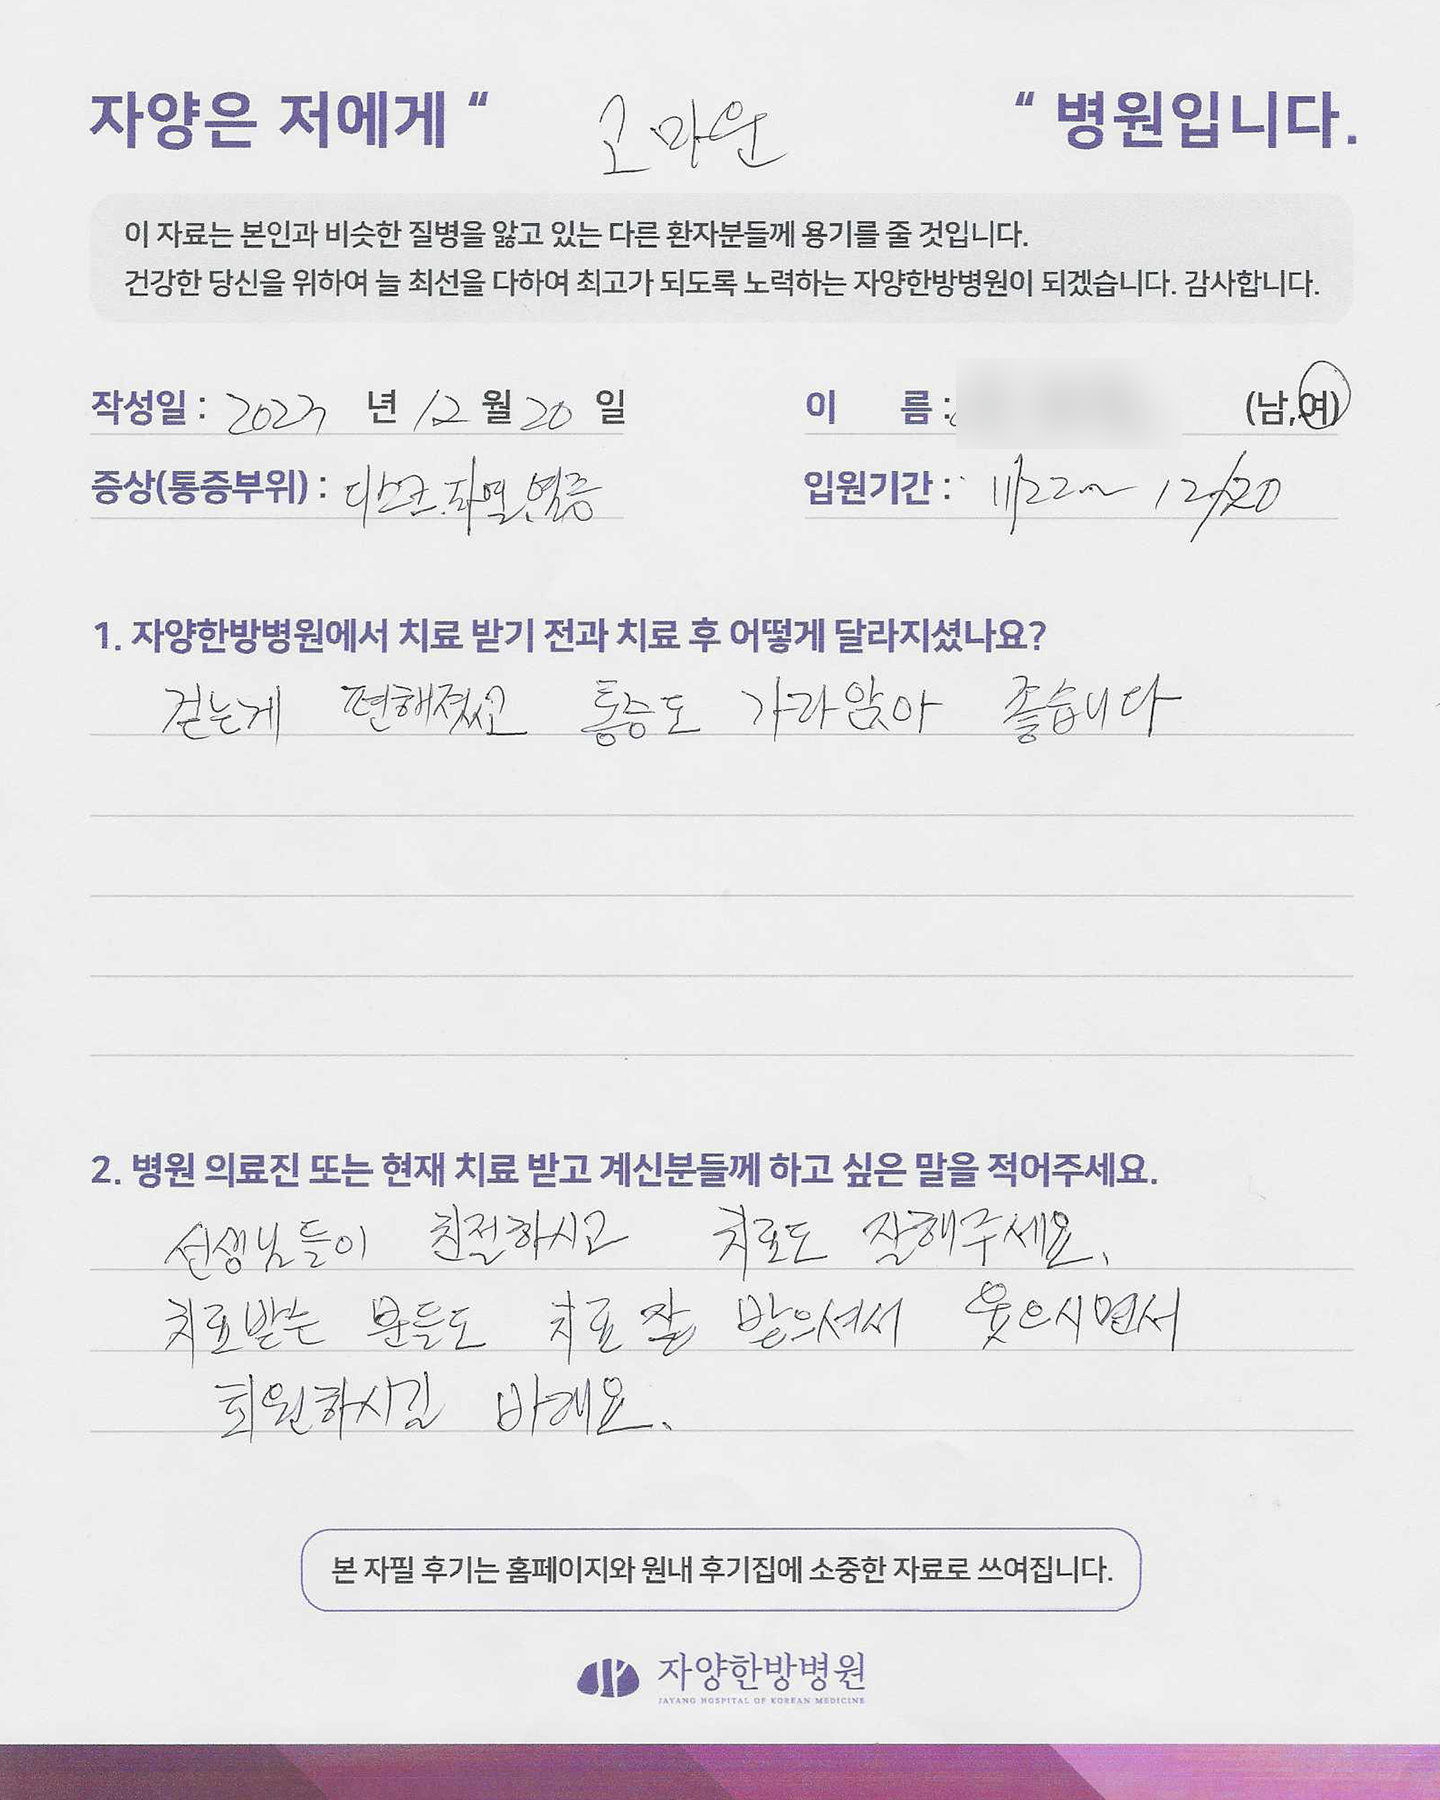 자양은 저에게 “ 고마운 “ 병원입니다.
이 자료는 본인과 비슷한 질병을 앓고 있는 다른 환자분들께 용기를 줄 것입니다.
건강한 당신을 위하여 늘 최선을 다하여 최고가 되도록 노력하는 자양한방병원이 되겠습니다. 감사합니다.
작성일 : 년 12 월 20 일 이 름 : (남,여)
증상(통증부위) : 디스크.파열.염증 입원기간 : 11/22~ 12/20
1. 자양한방병원에서 치료 받기 전과 치료 후 어떻게 달라지셨나요?
걷는게 편해졌고 통증도 가라앉아 좋습니다
2. 병원 의료진 또는 현재 치료 받고 계신분들께 하고 싶은 말을 적어주세요.
선생님들이 친절하시고 치료도 잘해주세요.
치료받는 분들도 치료 잘 받으셔서 웃으시면서
퇴원하시길 바래요.
본 자필 후기는 홈페이지와 원내 후기집에 소중한 자료로 쓰여집니다.
자양한방병원
JAYANG HOSPITAL OF KOREAN MEDICINE